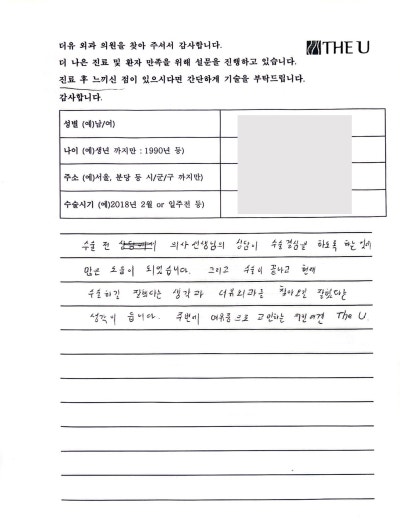 더유 외과 의원을 찾아 주셔서 감사합니다.
더 나은 진료 및 환자 만족을 위해 설문을 진행하고 있습니다.
진료 후 느끼신 점이 있으시다면 간단하게 기술을 부탁드립니다.
감사합니다.
THE U
성별 (예)남/여)
나이 (예)생년 까지만 : 1990년 등)
주소 (예)서울, 분당 등 시/군/구 까지만)
수술시기 (예)2018년 2월 or 일주전 등)
수술 전 의사선생님의 상담이 수술결심을 하도록 하는 데에
많은 도움이 되었습니다. 그리고 수술이 끝나고 현재
수술하길 잘했다는 생각과 더유외과를 찾아오길 잘했다는
생각이 듭니다. 주변에 여유증으로 고민하는 The U